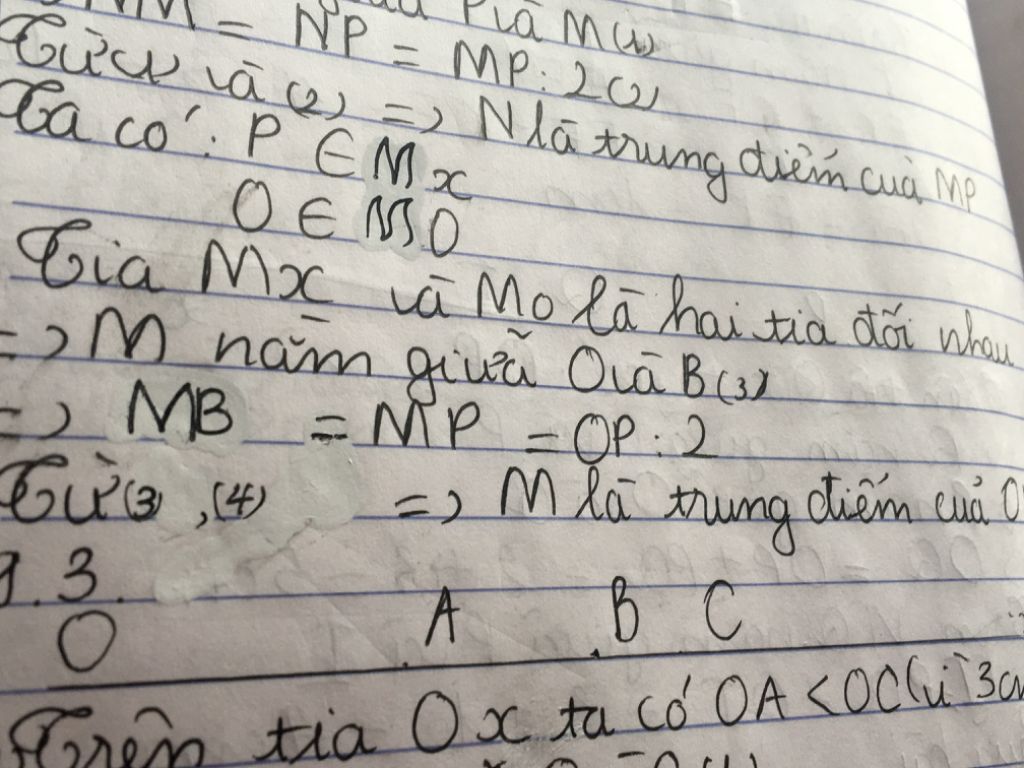 NM = NP = MP : 2 (2)
và M (1)
Từ (1) và (2) => N là trung điểm của MP
Ta có : P ∈ Mx
O ∈ MO
Tia Mx và Mo là hai tia đối nhau
=> M nằm giữa O và B (3)
=> MB = MP = OP : 2
Từ (3) , (4) => M là trung điểm của
9.3.
O A B C
Trên tia Ox ta có OA < OC (vì 3cm